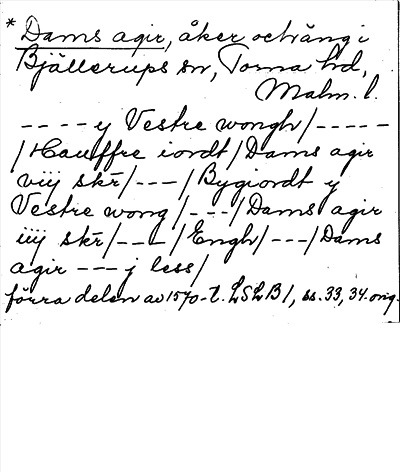 * Dams agir, åker och äng i
Bjällerups sn, Torna hd,
Malm. l.
---- y Vestre wongh/-----
/Hauffre iordt/Dams agir
viij skr̄/---/Bygiordt y
Vestre wong/---/Dams agir
iiij skr̄/---/Engh/---/Dams
agir --- j less/
förra delen av 1570-t. LSLB1, ss. 33, 34. orig.